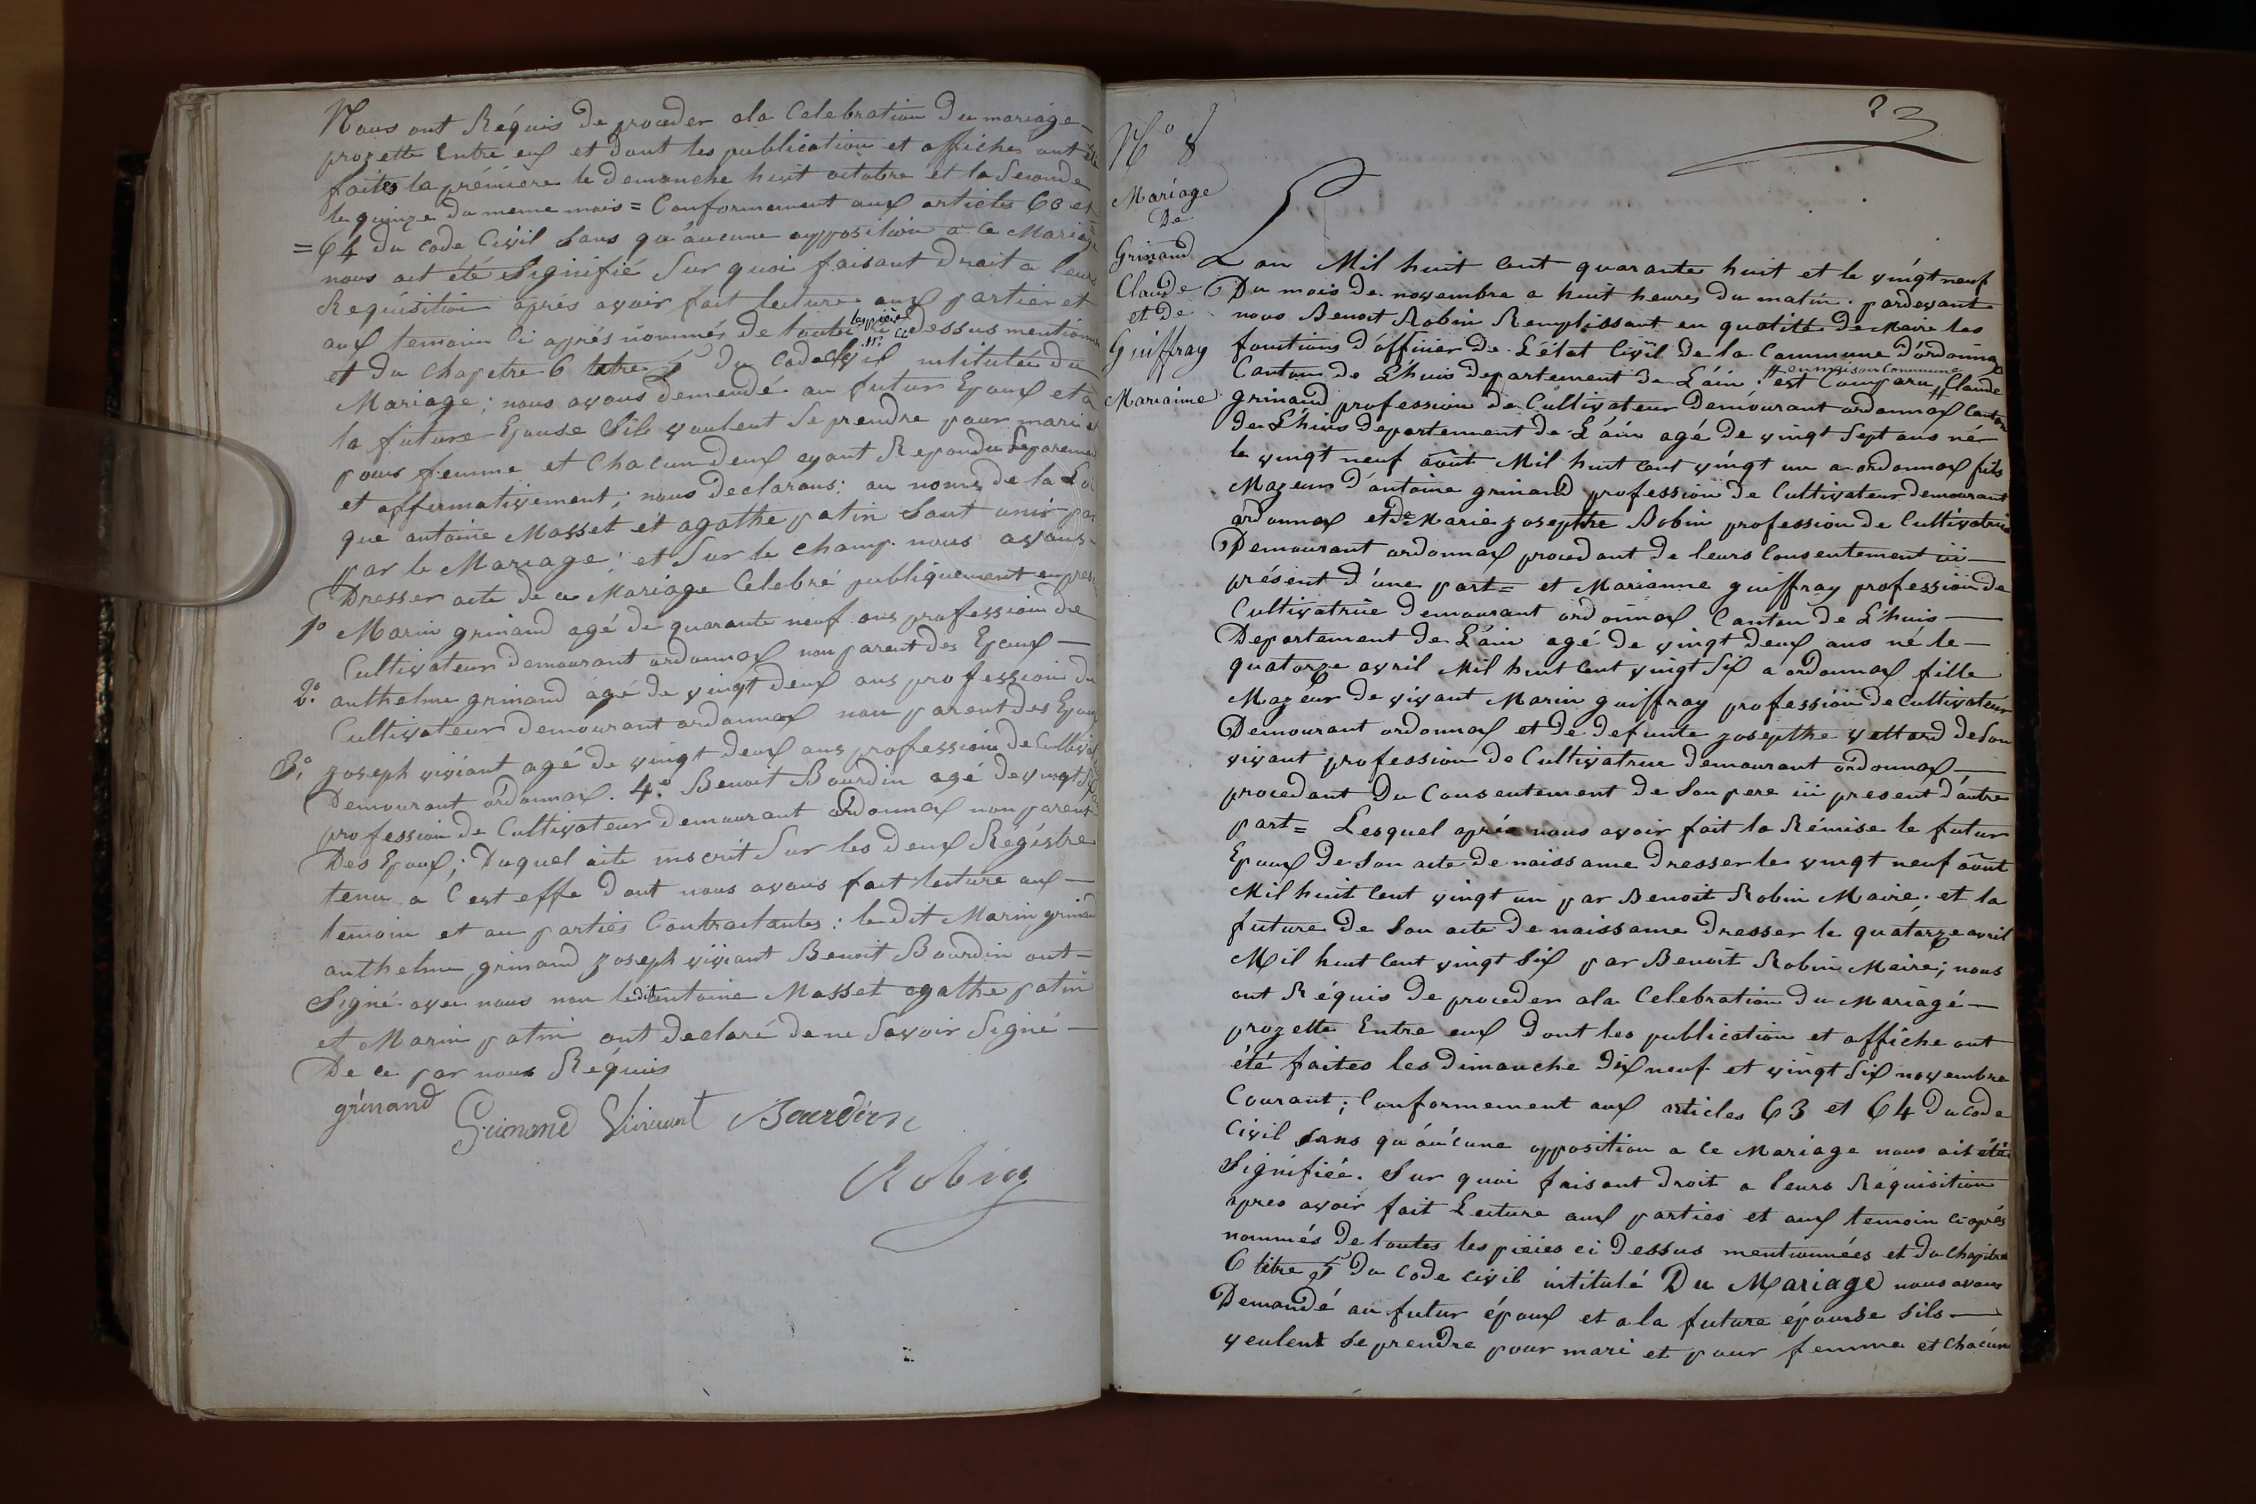 Nous ont Réquis de proceder ala Celebration du mariage
prozette Entre eux et dont les publication et affiches ont été
faites la prémière le demanche huit octobre et la Seconde
le quinze du meme mois = Conformement aux articles 63 et
= 64 du code Civil sans qu'aucune opposition a ce Mariage
nous ait été Signifié Sur quoi faisant droit a leurs
Requisition après avoir fait lecture aux partier et
aux temoin ci aprés nommés de toutes les pièces ci dessus mentionnés
et du chapitre 6 titre 5 du code Civil intitulée du
Mariage ; nous avons demendé au futur Epoux et a
la future Epouse Sils voulent Se prendre pour mari et
pour femme et Chacun deux ayant Repondu Separement
et affirmativement ; nous declarons : au nom de la Loi
que antoine Masset et agathe patin Sont unir par
par le Mariage ; et Sur le champ nous avons
Dresser acte de ce Mariage Celebré publiquement en
1° Marin grinand agé de quarante neuf ans profession de
Cultivateur demourant ordonnax non parent des Epoux —
2° anthelme grinand agé de vingt deux ans profession de
Cultivateur demourant ordonnax non parent des Epoux
3° zoseph viviant agé de vingt deux ans profession de
Demourant ordonnax . 4° Benoit Bourdin agé de vingt
profession de Cultivateur demourant Ordonnax non parent
Des Epoux ; Duquel acte inscrit Sur les deux Régistre
tenu a C'est effe dont nous avons fait lecture aux —
temoin et au parties Contractantes : le dit Marin grinand
anthelme grinand zoseph viviant Benoit Bourdin ont =
Signé avec nous non ledit antoine Masset agathe patin
et Marin patin ont declaré de ne Savoir Signé —
De ce par nous Réquis
grinand Grinand Viviant Bourdin
Robin
23
N° 8
Mariage
De
Grinand
Claude
et de
Guiffray
Marianne
Lan Mil huit cent quarante huit et le vingt neuf
Du mois de novembre a huit heures du matin . pardevant
nous Benoit Robin Remplissant en qualitté de Maire les
fonctions d'officier de L'état Civil de la Commune d'ordonnax
Canton de Lhuis departement de L'ain : est Comparu # en maison Commune # Claude
grinand profession de Cultivateur Demourant ordonnax Canton
de Lhuis departement de L'áin agé de vingt Sept ans né
le vingt neuf août Mil huit cent vingt un a ordonnax fils
Mazeur d'antoine grinand profession de Cultivateur demourant
ordonnax et de Marie zosepthe Bobin profession de Cultivatrice
Demourant ordonnax procedant de leurs Consentement ici —
présent d'une part = et Marianne guiffray profession de
Cultivatrice demourant ordonnax Canton de Lhuis —
Departement de L'áin agé de vingt deux ans né le —
quatorze avril Mil huit cent vingt Six a ordonnax fille
Mazeur de vivant Marin guiffray profession de Cultivateur
Demourant ordonnax et de defunte zosepthe vettard de Son
vivant profession de Cultivatrice demourant ordonnax —
procedant Du Consentement de Son pere ici present d'autre
part = Lesquel après nous avoir fait la Rémise le futur
Epoux de Son acte de naissance dresser le vingt neuf août
Mil huit cent vingt un par Benoit Robin Maire . et la
future de Son acte de naissance dresser le quatorze avril
Mil huit cent vingt Six par Benoit Robin Maire ; nous
ont Réquis de proceder ala Celebration du Mariagé —
prozette Entre eux dont les publication et affiche ont
été faites les dimanche dix neuf et vingt Six novembre
Courant ; Conformement aux articles 63 et 64 du code
Civil sans qu'aucune opposition a ce Mariage nous ait été
Signifiée . Sur quoi faisant droit a leurs Réquisition
apres avoir fait Lecture aux parties et aux temoin ci après
nommés de toutes les pièces ci dessus mentionnées et du chapitre
6 titre 5 du code civil intitulé Du Mariage nous avons
Demandé au futur époux et a la future épouse Sils —
veulent Se prendre pour mari et pour femme et chacun